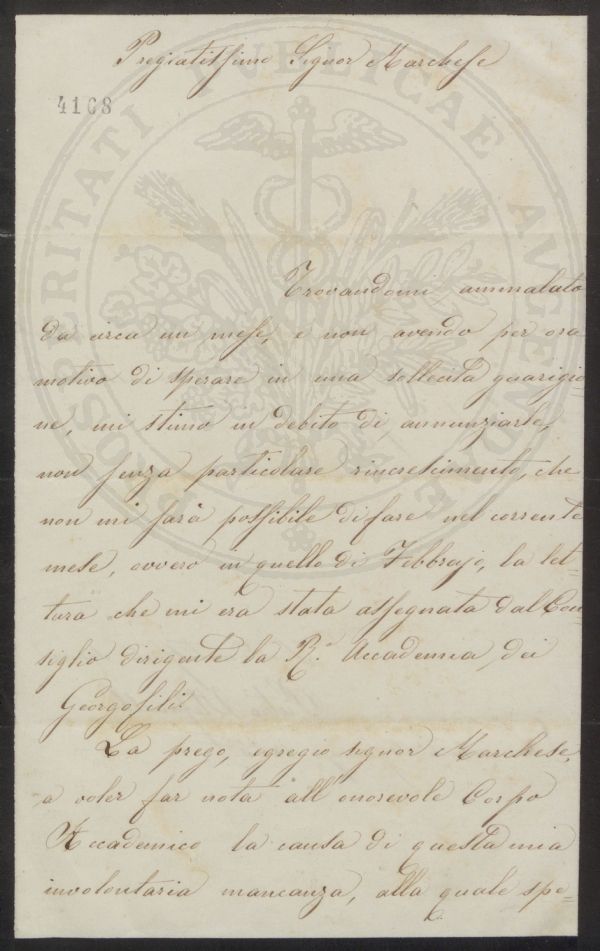 Pregiatissimo Signor Marchese
4168
PROSPERITATI PVBLICAE AVGENDAE
Trovandomi ammalato
da circa un mese, e non avendo per ora
motivo di sperare in una sollecita guarigio-
ne, mi stimo in debito di annunziarle,
non senza particolare rincrescimento, che
non mi sarà possibile di fare nel corrente
mese, ovvero in quello di Febbrajo, la let-
tura che mi era stata assegnata dal Con
siglio dirigente la R.e Accademia dei
Georgofili.
La prego, egregio signor Marchese,
a voler far nota all'onorevole Corpo
Accademico la causa di questa mia
involontaria mancanza, alla quale spe-